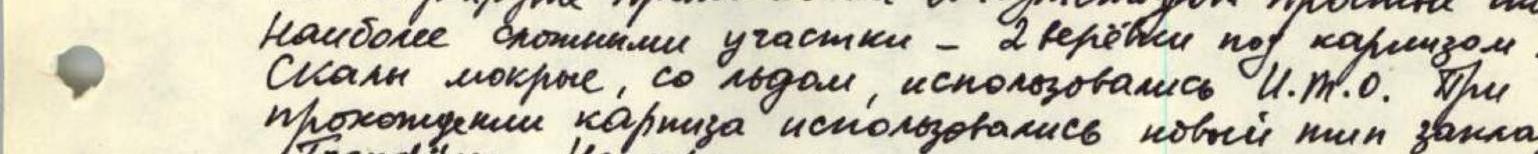 Наиболее сложными участки - 2 верёвки под карнизом.
Скалы мокрые, со льдом, использовались И.Т.О. При
прохождении карниза использовались новый тип закла